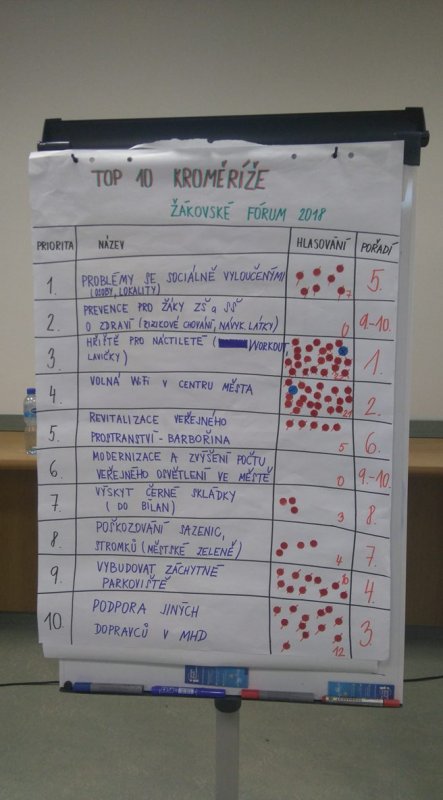 TOP 10 KROMĚŘÍŽE
ŽÁKOVSKÉ FÓRUM 2018
PRIORITA NÁZEV HLASOVÁNÍ POŘADÍ
1. PROBLÉMY SE SOCIÁLNĚ VYLOUČENÝMI 7 5.
(OSOBY, LOKALITY)
2. PREVENCE PRO ŽÁKY ZŠ a SŠ 0 9.-10.
O ZDRAVÍ (RIZIKOVÉ CHOVÁNÍ, NÁVYK. LÁTKY)
3. HŘIŠTĚ PRO NÁCTILETÉ ( WORKOUT, 1.
LAVIČKY)
4. VOLNÁ WiFi V CENTRU MĚSTA 21 2.
5. REVITALIZACE VEŘEJNÉHO 5 6.
PROSTRANSTVÍ - BARBOŘINA
6. MODERNIZACE A ZVÝŠENÍ POČTU 0 9.-10.
VEŘEJNÉHO OSVĚTLENÍ VE MĚSTĚ
7. VÝSKYT ČERNÉ SKLÁDKY 3 8.
( DO BÍLAN)
8. POŠKOZDVÁNÍ SAZENIC, 4 7.
STROMKŮ (MĚSTSKÉ ZELENĚ)
9. VYBUDOVAT ZÁCHYTNÉ 4.
PARKOVIŠTĚ
10. PODPORA JINÝCH 12 3.
DOPRAVCŮ V MHD